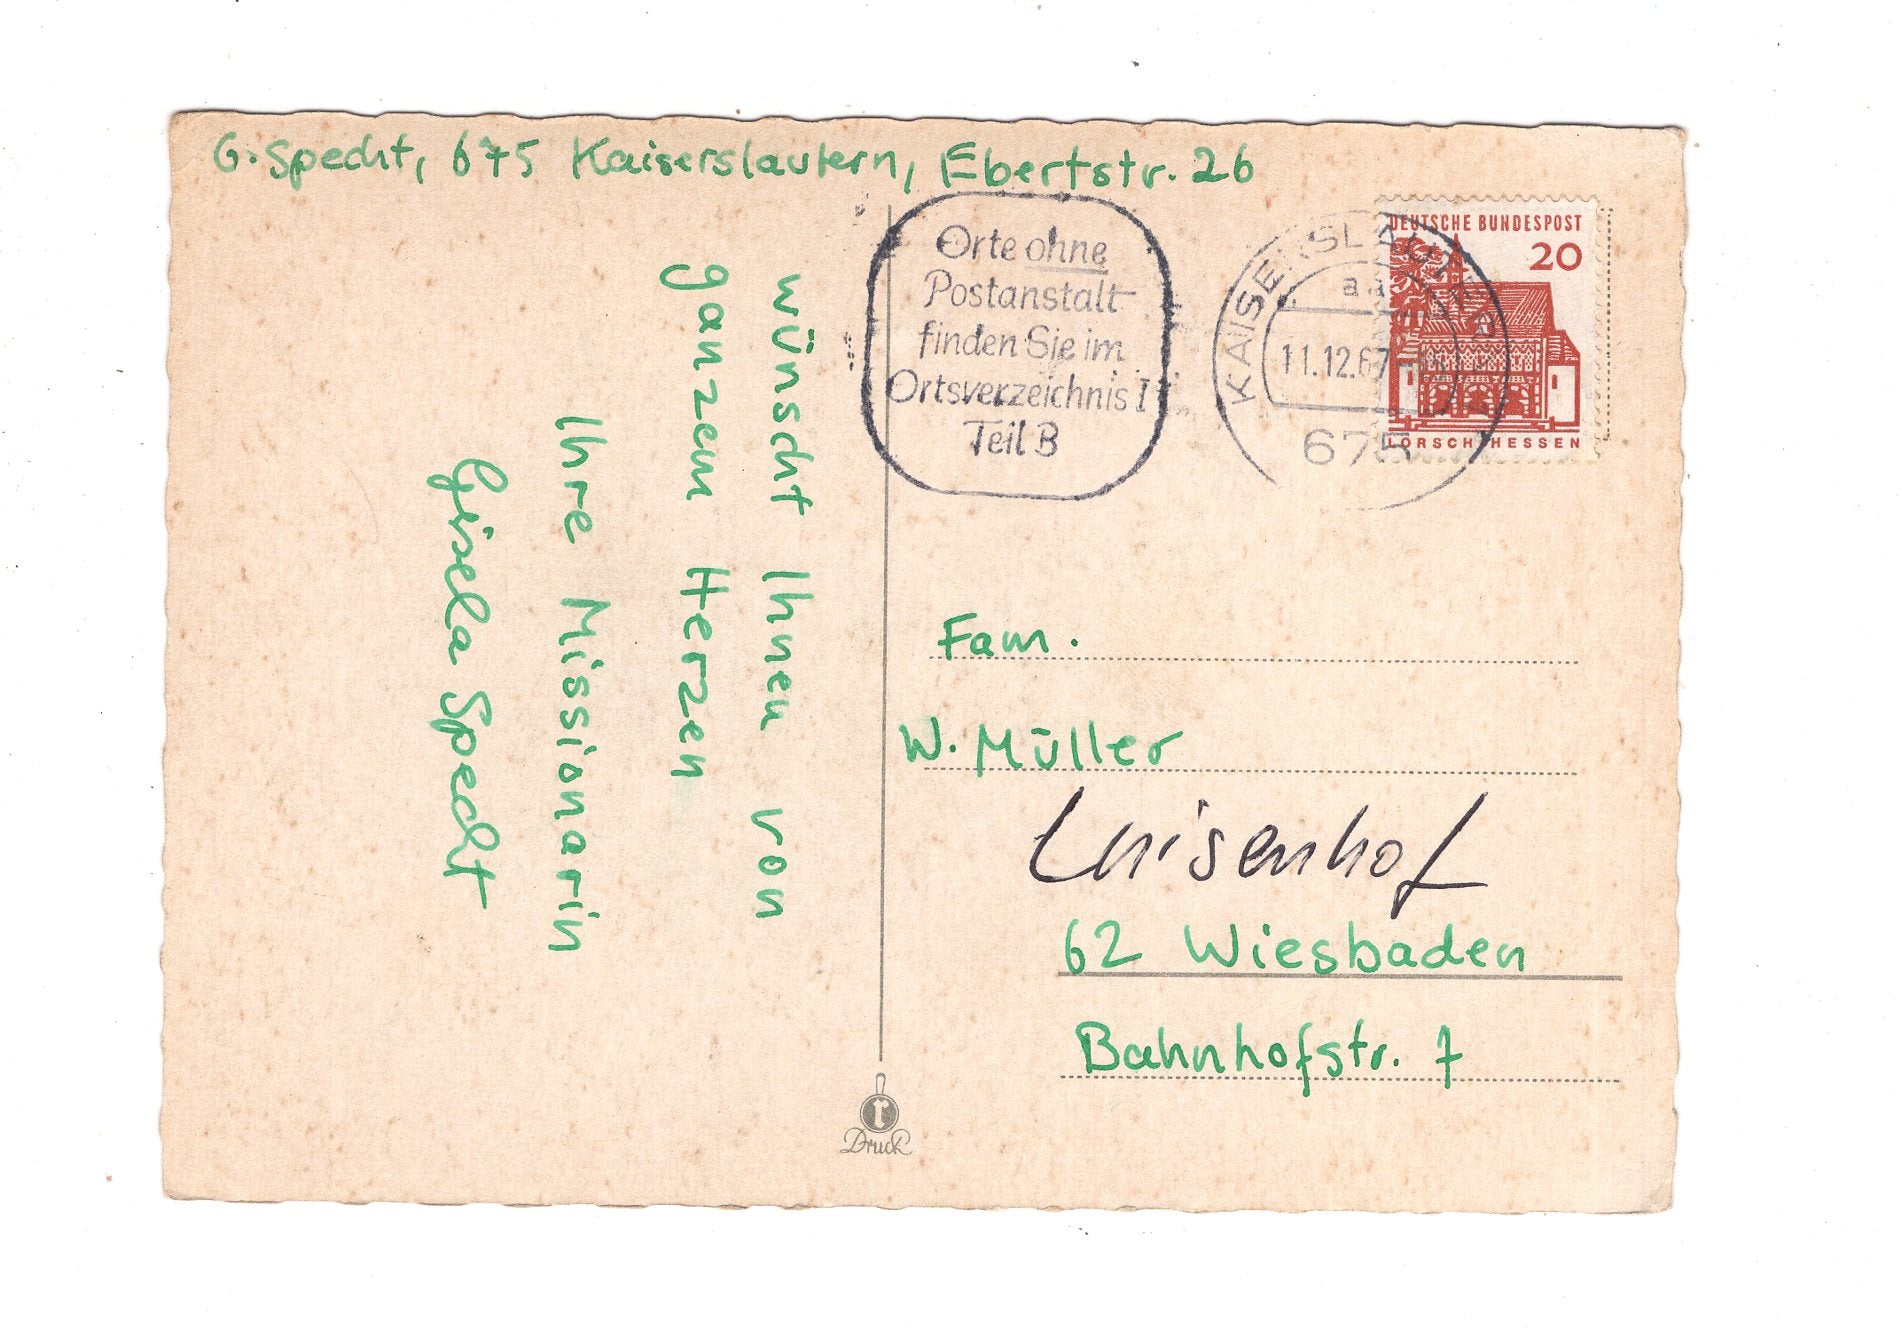 G. Specht, 675 Kaiserslautern, Ebertstr. 26
wünscht Ihnen von
ganzem Herzen
Ihre Missionarin
Gisela Specht
Orte ohne
Postanstalt
finden Sie im
Ortsverzeichnis I
Teil B
KAISERSLAUTERN
aa
11.12.67
675
DEUTSCHE BUNDESPOST
20
LORSCH/HESSEN
Fam.
W. Müller
Luisenhof
62 Wiesbaden
Bahnhofstr. 7
r
Druck